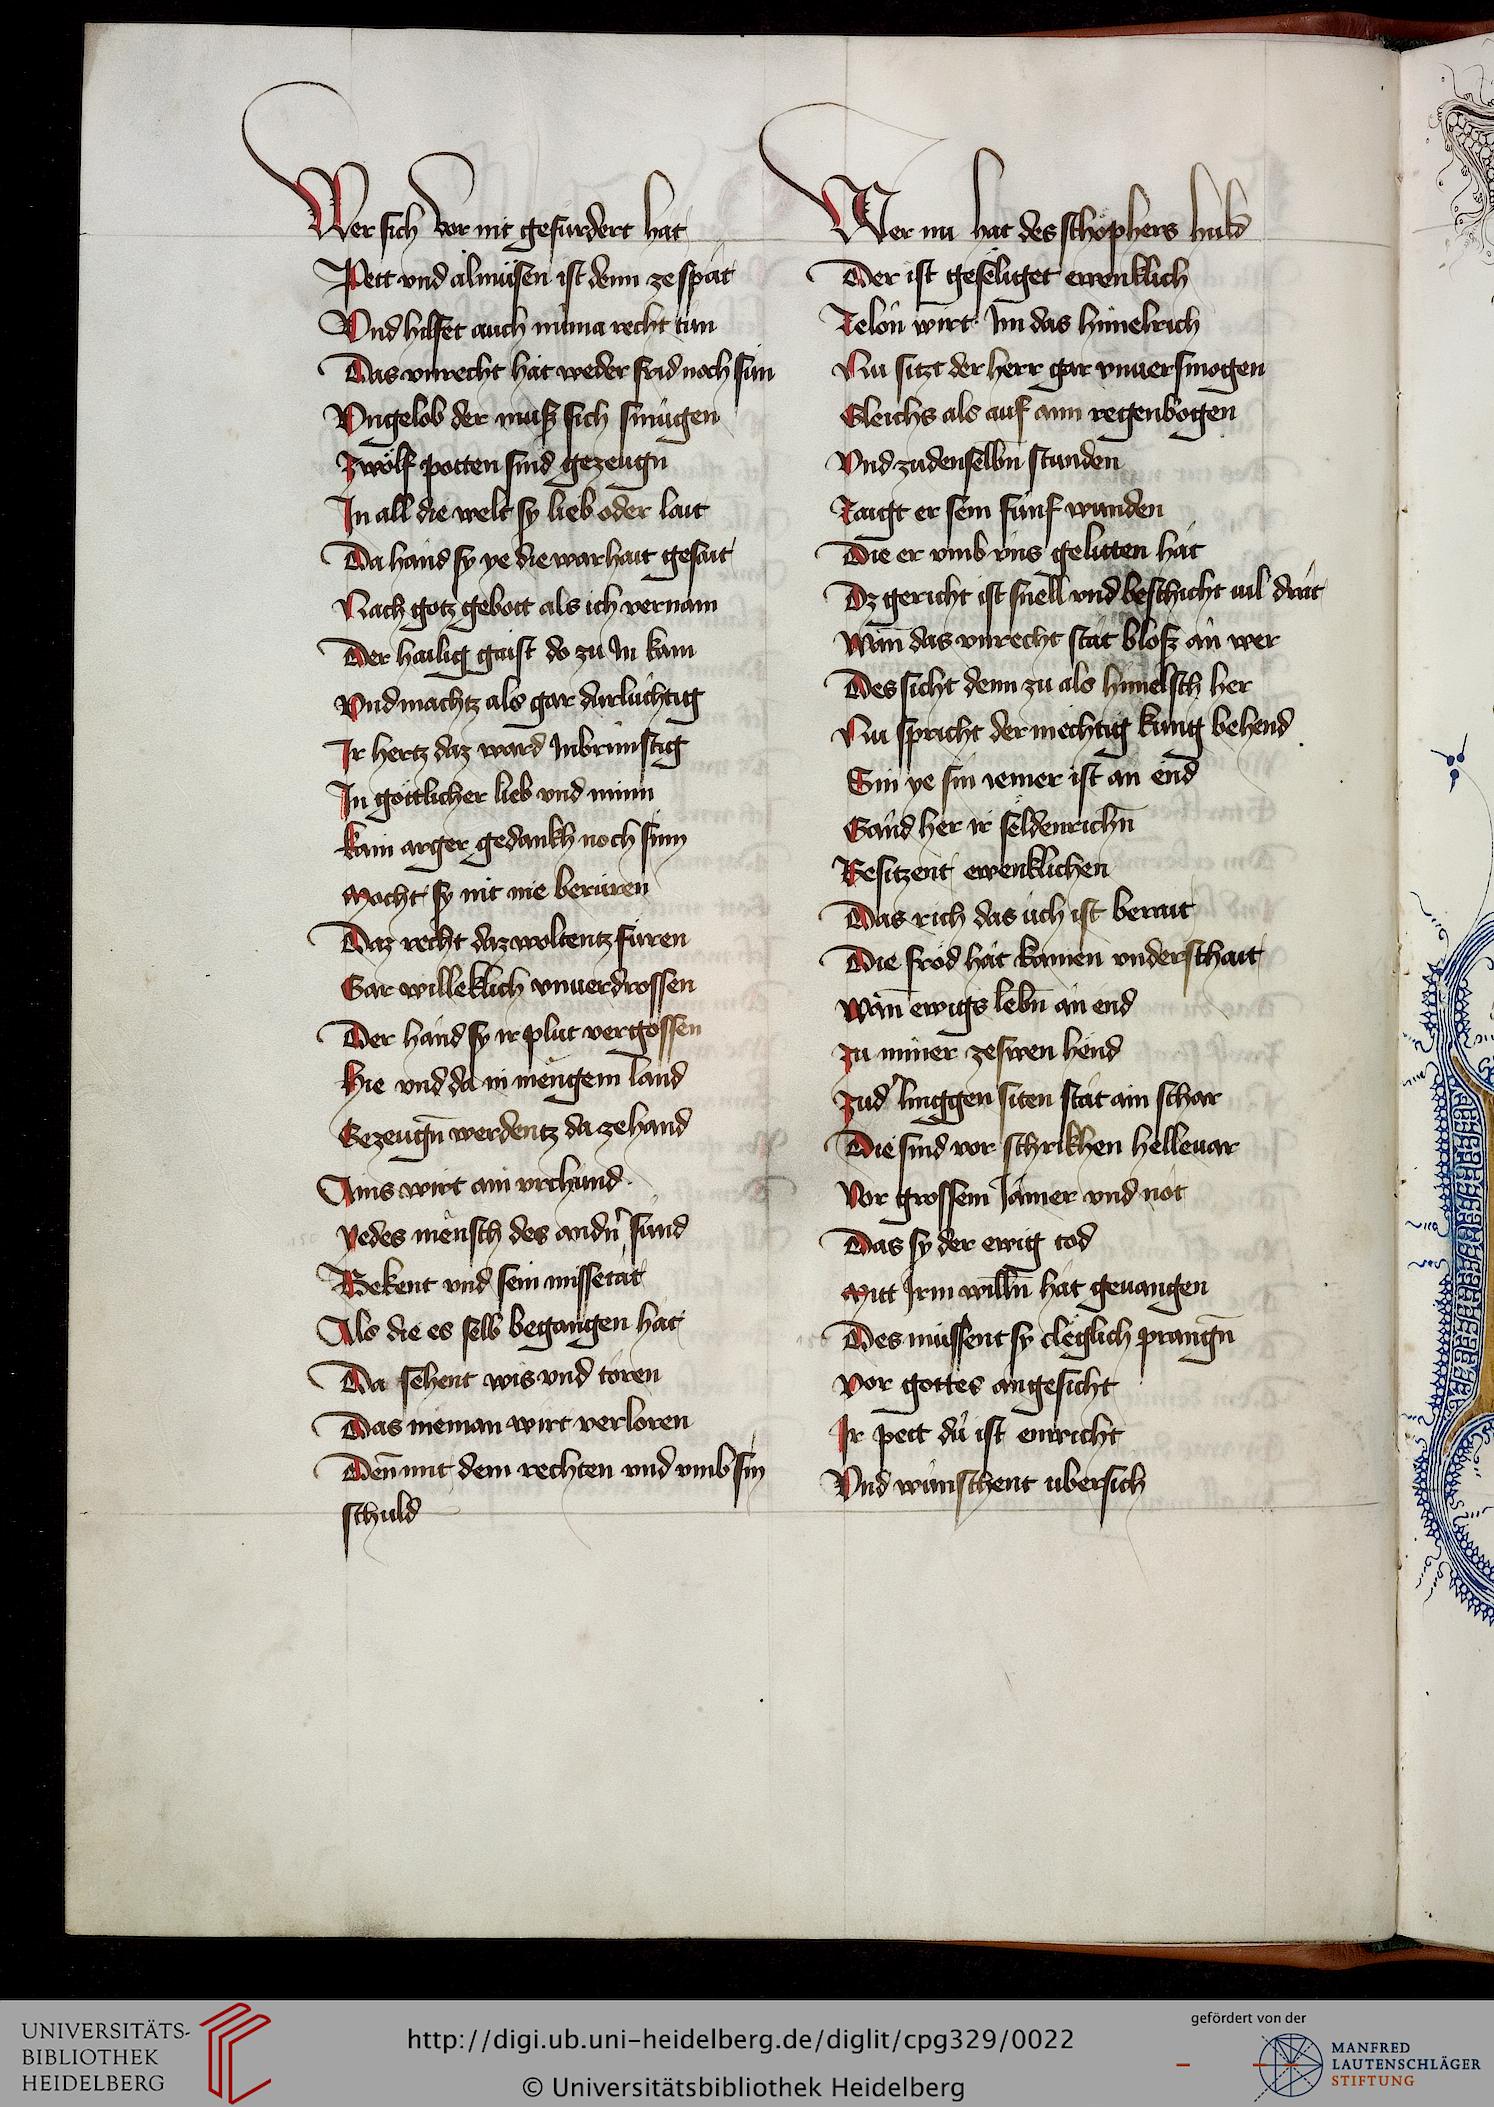 Wer sich vor nit gefürdert hat
Pett vnd almüsen ist denn ze spät
Vnd hilfet auch nima recht tün
Das vnrecht hät weder frid noch sün
Vngelob der müß sich smügen
Zwölf potten sind gezeugn̄
In all die welt sy lieb oder lait
Da händ sy ye die warhait gesait
Nach gotz gebott als ich vernam
Der hailig gaist do zu In kam
Vnd machtz als gar durlüchtig
Ir hertz daz ward Inbrünstig
In göttlicher lieb vnd minn
Kain arger gedankh noch sinn
Mocht sy nit nie berüren
Daz recht daz woltentz füren
Gar willeklich vnuerdrossen
Der händ sy ir plüt vergossen
Hie vnd da in mengem land
Gezeugn̄ werdentz da zehand
Ains wirt ain vrchund
Yedes mensch des andn̄ sünd
Bekent vnd sein missetät
Als die es selb begangen hät
Da sehent wis vnd toren
Das nieman wirt verloren
Den̄ mit dem rechten vnd vmb sin
schuld
Wer nu hat des schöphers huld
Der ist geseliget ewenklich
Zelon wirt Im das himelrich
Nu sitzt der herr gar vnuersmogen
Gleichs als auf aim regenbogen
Vnd zu denselbn̄ stunden
Zaigt er sein fünf wunden
Die er vmb vns gelitten hät
Dz gericht ist snell vnd beschicht uil drät
Wan̄ das vnrecht stät blosz än wer
Des sicht denn zu als himelsch her
Nu spricht der mechtig küng behend
Sin ye sin iemer ist än end
Gänd her ir seldenrichn̄
Besitzent ewenklichen
Das rich das üch ist berait
Die fröd hät kainen vnderschait
Wan̄ ewigs lebn̄ än end
Zu miner zeswen hend
Zu d' linggen siten stät ain schar
Die sind vor schrikhen helleuar
Vor grossem Jamer vnd not
Das sy der ewig tod
Mitt Irm willn̄ hät geuangen
Des müssent sy cleglich prangn̄
Vor gottes angesicht
Ir pett dü ist enwicht
Vnd wünschent übersich
UNIVERSITÄTS-
BIBLIOTHEK
HEIDELBERG
http://digi.ub.uni-heidelberg.de/diglit/cpg329/0022
© Universitätsbibliothek Heidelberg
gefördert von der
MANFRED
LAUTENSCHLÄGER
STIFTUNG